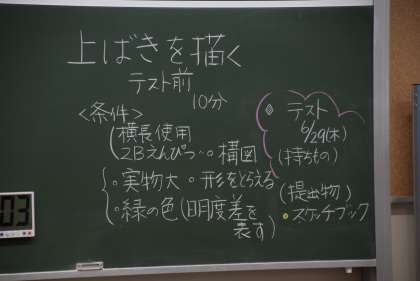 上ばきを描く
テスト前
10分
<条件>
横長使用
2Bえんぴつ…。構図
。実物大 。形をとらえる
。緑の色(明度差を
表す)
テスト
6/29(木)
(持ちもの)
(提出物)
スケッチブック
03